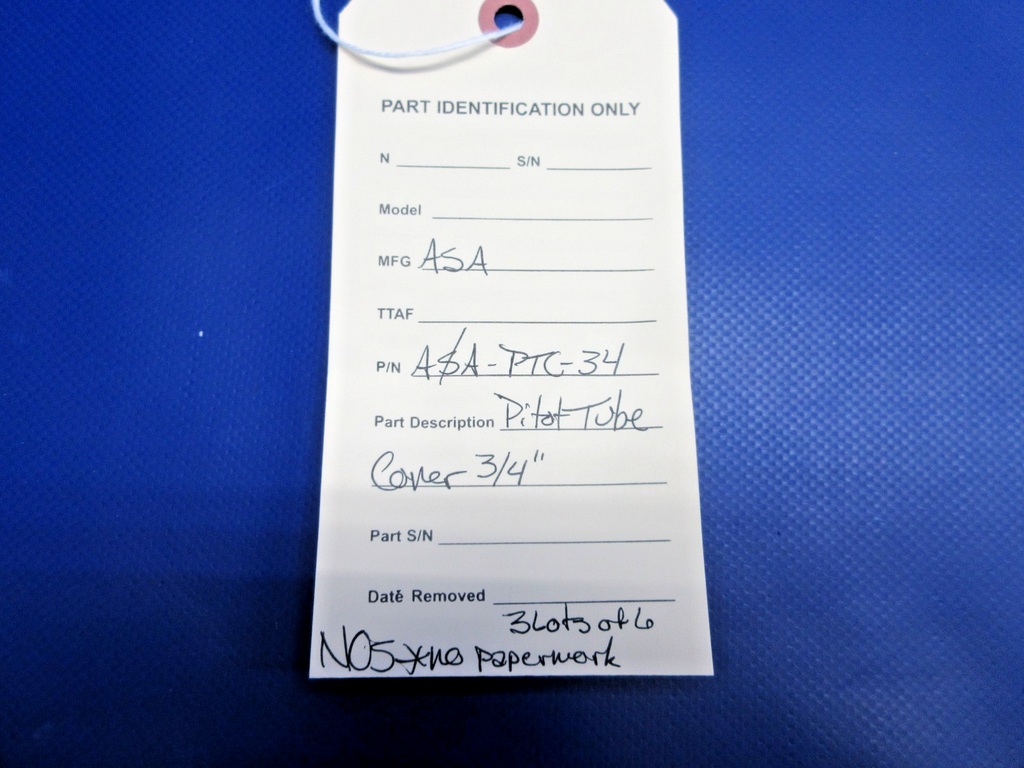 PART IDENTIFICATION ONLY
N ____________ S/N ____________
Model ____________
MFG ASA
TTAF ____________
P/N ASA-PTC-34
Part Description Pitot Tube
Cover 3/4"
Part S/N ____________
Date Removed ____________
3 Lots of 6
NOS no paperwork